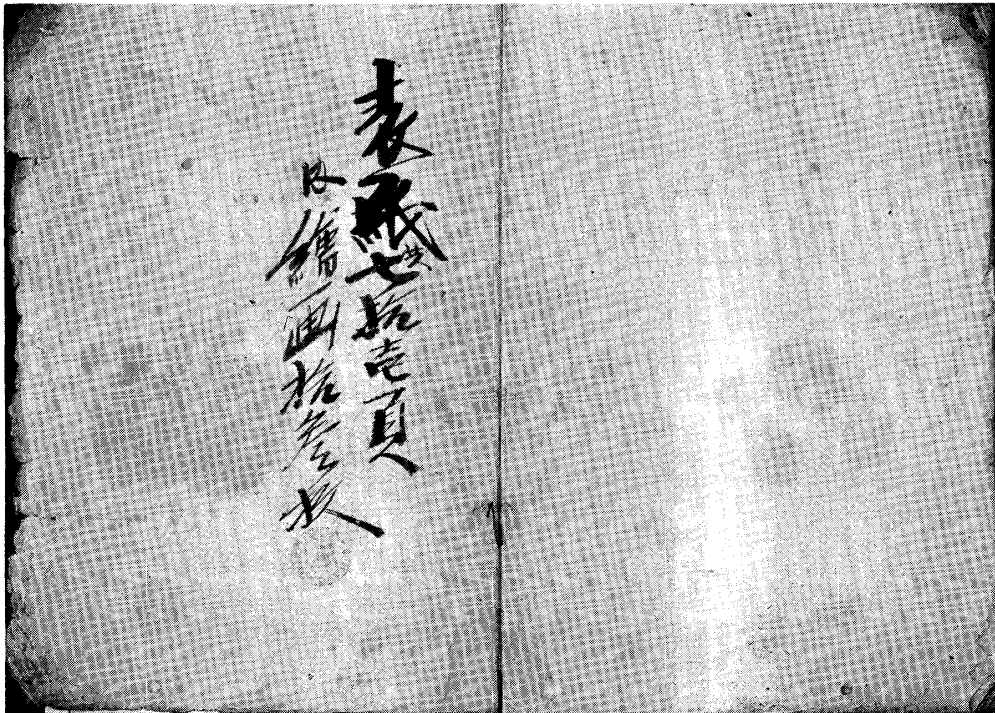 表紙共七拾壱頁
外繪画拾参枚